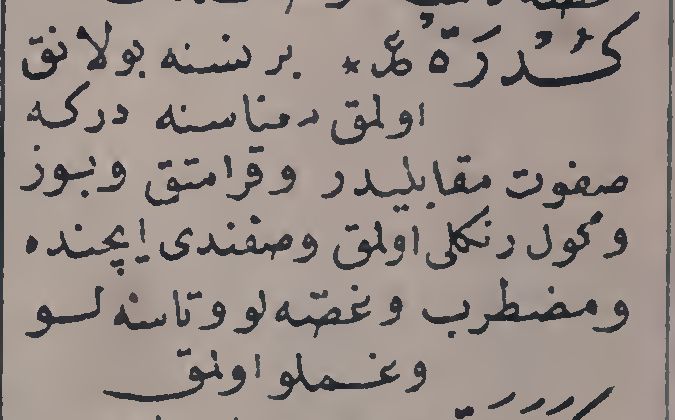 كُدْرَةْ ع * بر نسنه بولانق
اولمق معناسنه دركه
صفوت مقابليدر وقرامتق وبوز
وكول رنكلى اولمق وصقندى ايچنده
ومضطرب وغصّه لو وتاسه لو
وغملو اولمق